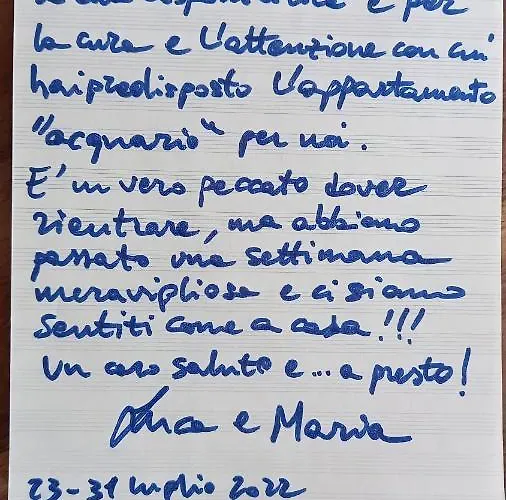 la tua disponibilità e per
la cura e l'attenzione con cui
hai predisposto l'appartamento
"acquario" per noi.
E' un vero peccato dover
rientrare, ma abbiamo
passato una settimana
meravigliosa e ci siamo
sentiti come a casa!!!
Un caro saluto e... a presto!
Luca e Maria
23-31 luglio 2022